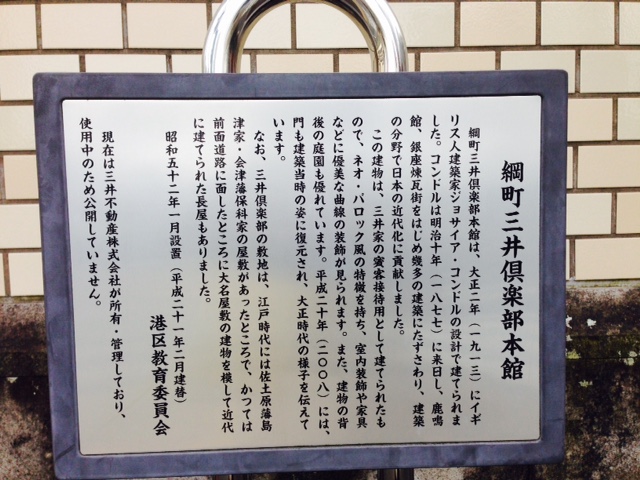 綱町三井倶楽部本館
綱町三井倶楽部本館は、大正二年（一九一三）にイギ
リス人建築家ジョサイア・コンドルの設計で建てられま
した。コンドルは明治十年（一八七七）に来日し、鹿鳴
館、銀座煉瓦街をはじめ幾多の建築にたずさわり、建築
の分野で日本の近代化に貢献しました。
この建物は、三井家の賓客接待用として建てられたも
ので、ネオ・バロック風の特徴を持ち、室内装飾や家具
などに優美な曲線の装飾が見られます。また、建物の背
後の庭園も優れています。平成二十年（二〇〇八）には、
門も建築当時の姿に復元され、大正時代の様子を伝えて
います。
なお、三井倶楽部の敷地は、江戸時代には佐土原藩島
津家・会津藩保科家の屋敷があったところで、かつては
前面道路に面したところに大名屋敷の建物を模して近代
に建てられた長屋もありました。
昭和五十二年一月設置（平成二十一年二月建替）
港区教育委員会
現在は三井不動産株式会社が所有・管理しており、
使用中のため公開していません。